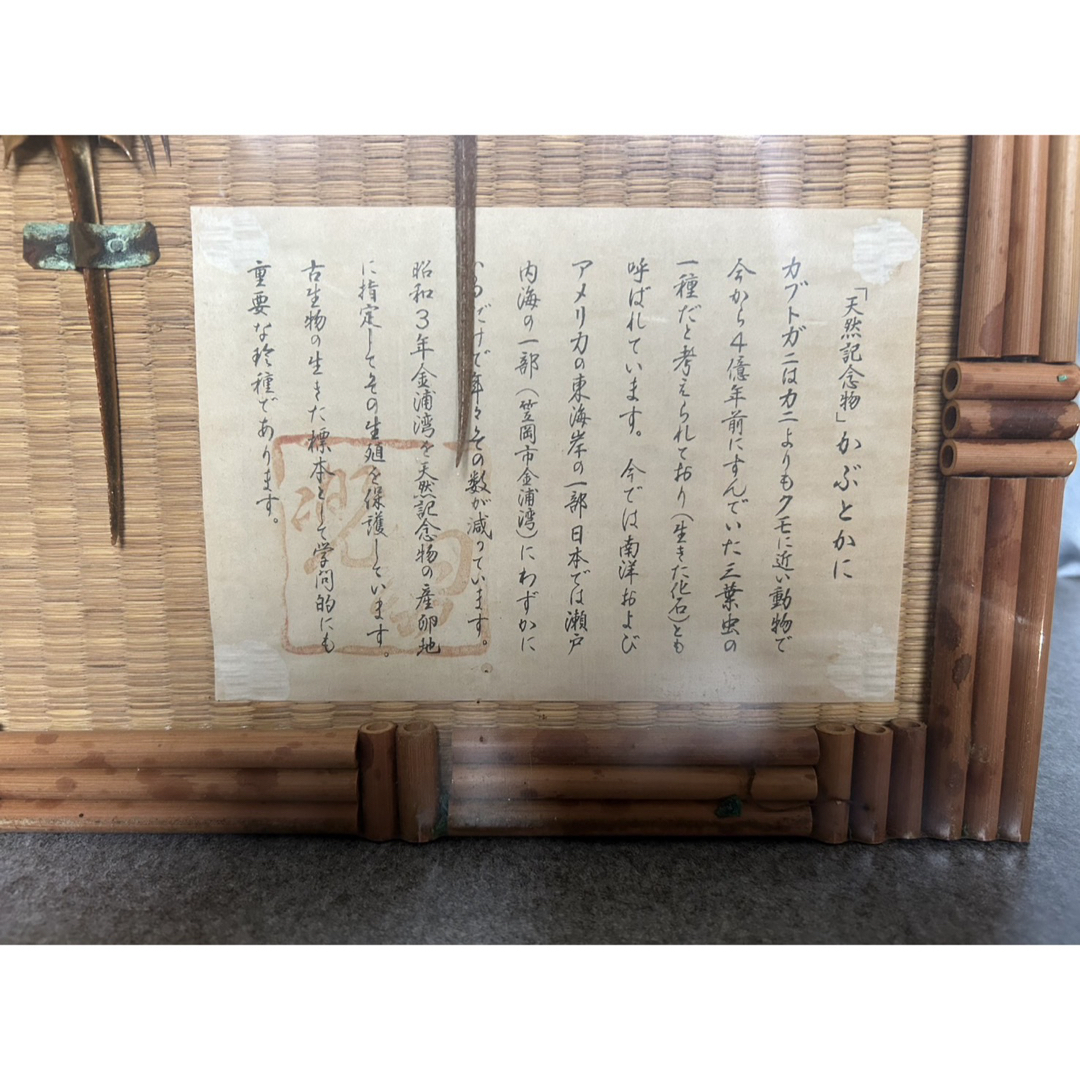 「天然記念物」かぶとかに
カブトガニはカニよりもクモに近い動物で
今から4億年前にすんでいた三葉虫の
一種だと考えられており(生きた化石)とも
呼ばれています。今では南洋および
アメリカの東海岸の一部日本では瀬戸
内海の一部(笠岡市金浦湾)にわずかに
るだけで年々その数が減っています。
昭和3年金浦湾を天然記念物の産卵地
に指定してその生殖を保護しています。
古生物の生きた標本として学問的にも
重要な珍種であります。